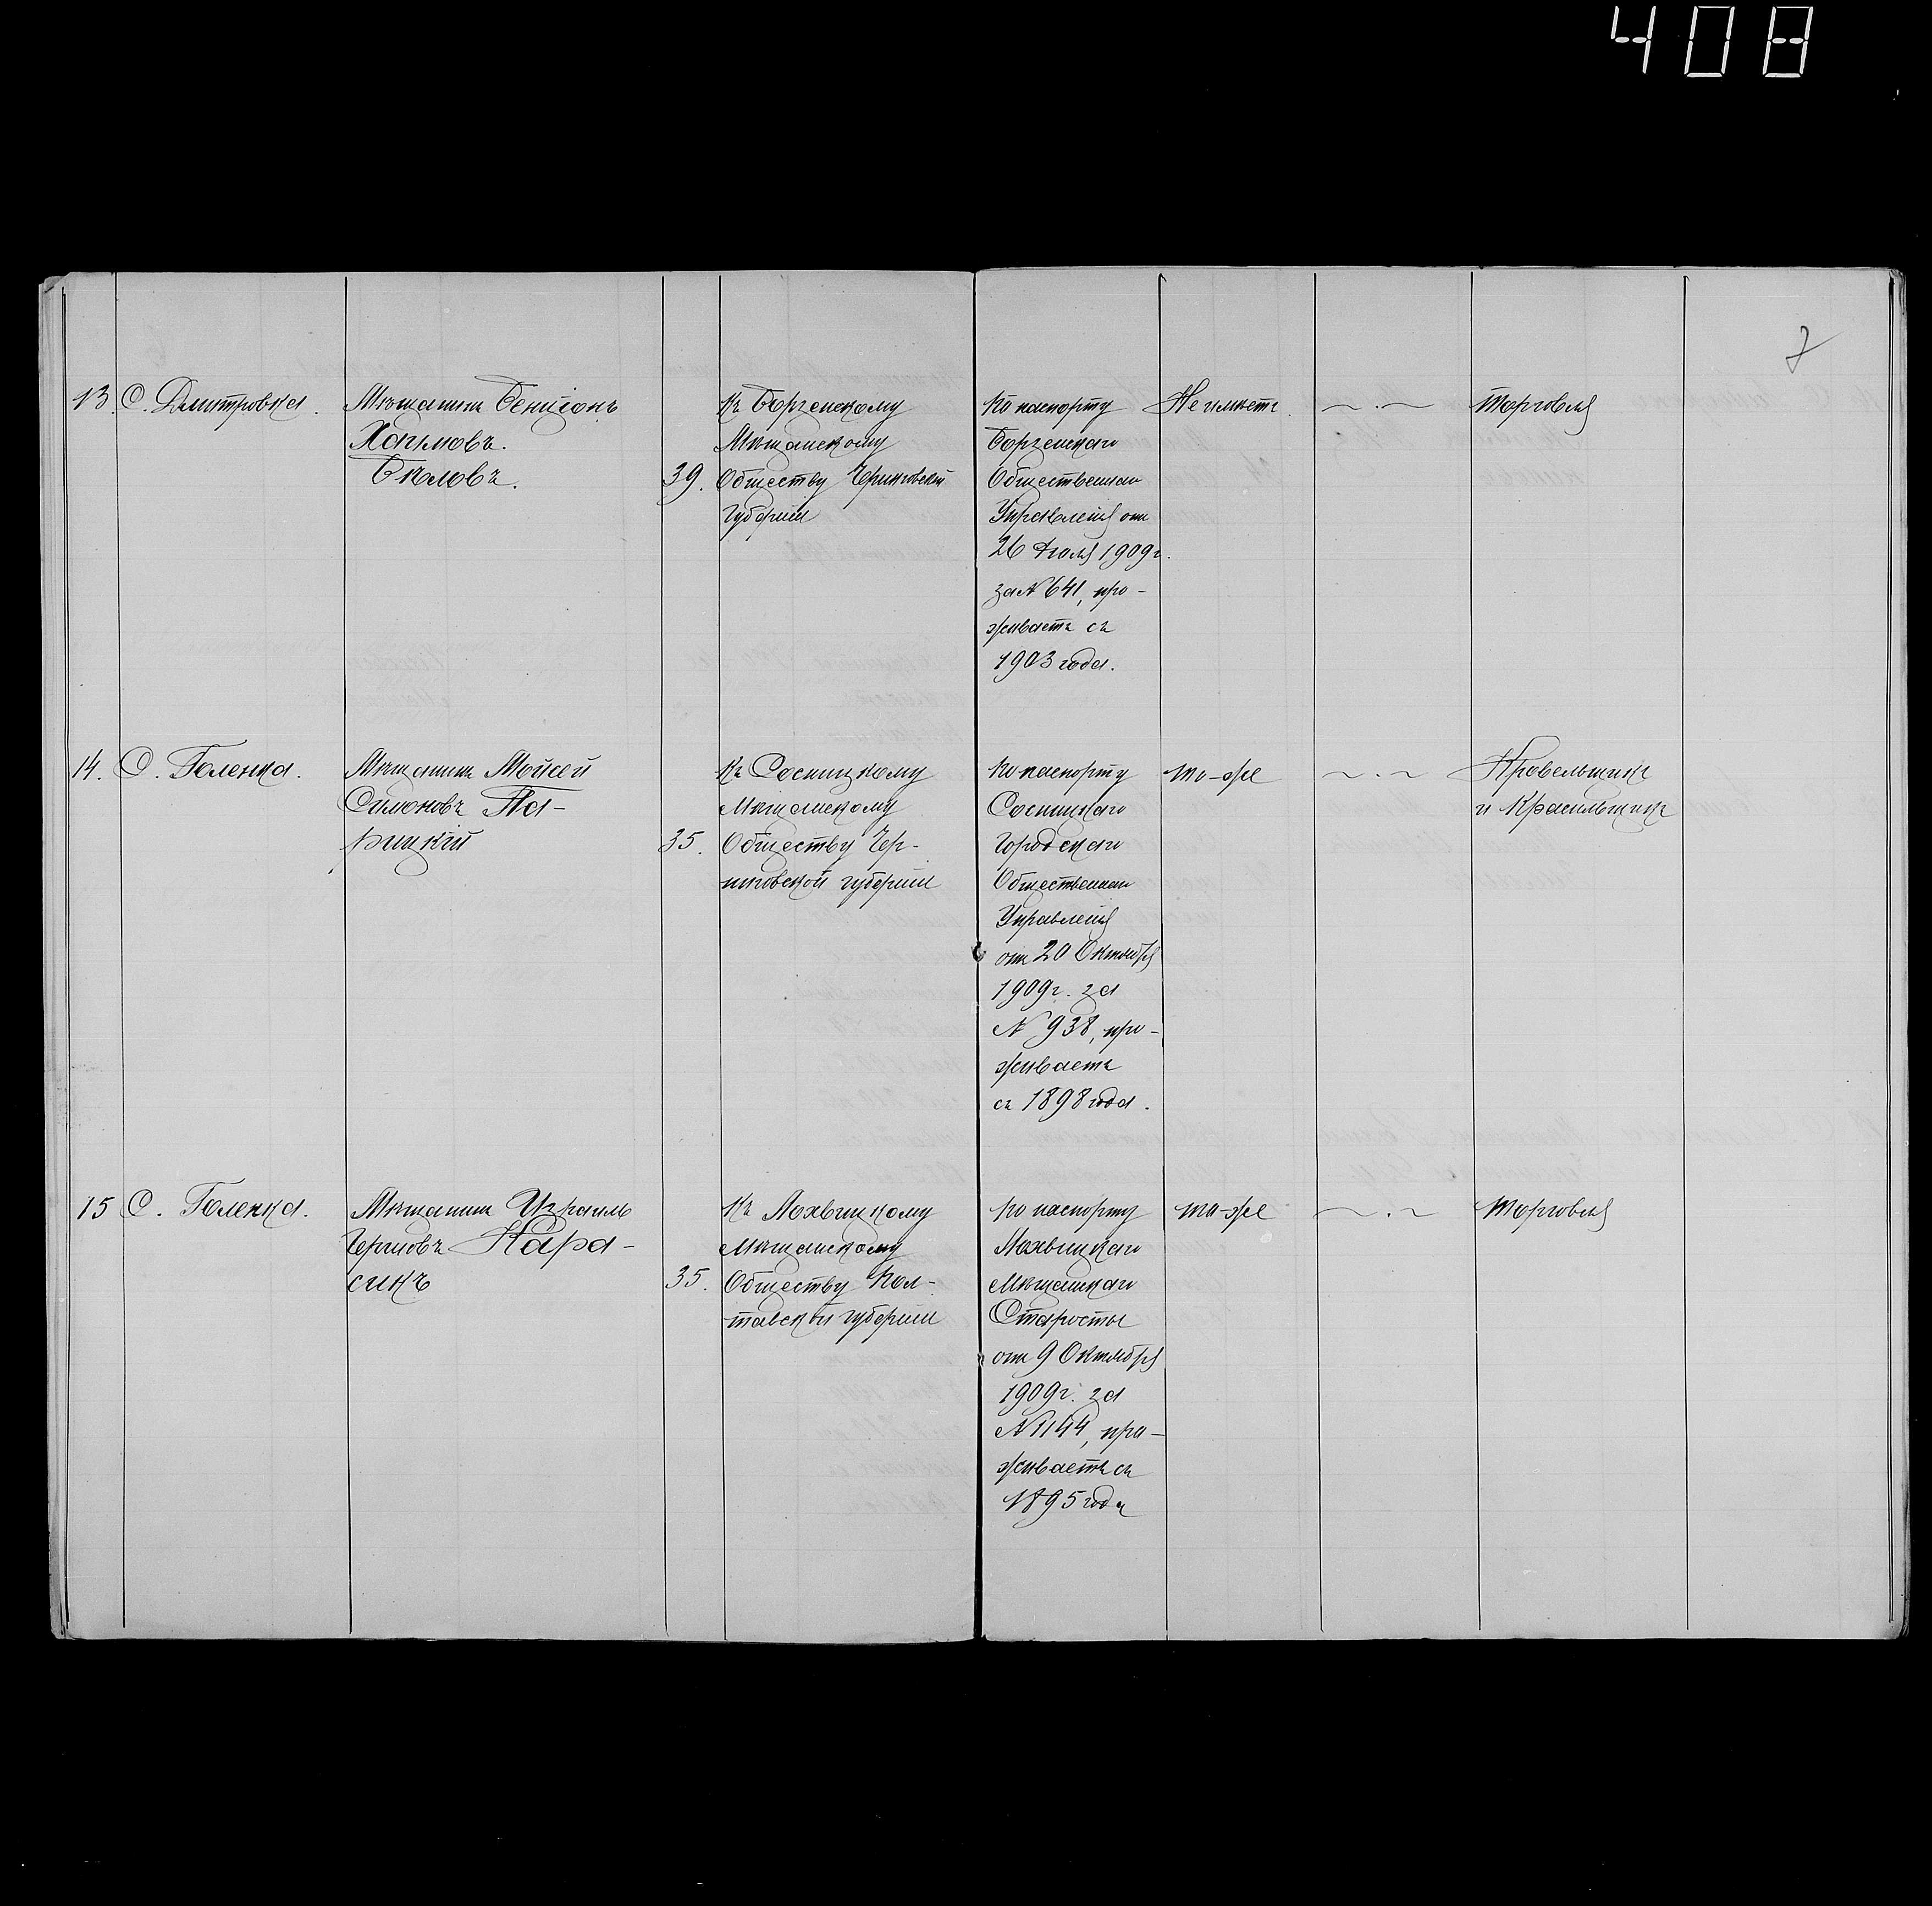 408
7
13. С. Дмитровка.
Мѣщанинъ Бенціонъ
Хаимовъ.
Бѣловъ.
39.
Къ Борзенскому
Мѣщанскому
Обществу Черниговской
губерніи
По паспорту
Борзенскаго
Общественнаго
Управленія отъ
26 Іюля 1909 г.
за № 641, про-
живаетъ съ
1903 года.
Не имѣетъ.
— . —
Торговля
14. С. Голенка.
Мѣщанинъ Мойсей
Симоновъ Па-
рицкій
35.
Къ Сосницкому
Мѣщанскому
Обществу Чер-
ниговской губерніи
По паспорту
Сосницкаго
Городскаго
Общественнаго
Управленія
отъ 20 Октября
1909 г. за
№ 938, про-
живаетъ
съ 1898 года.
то-же
— . —
Кровельщикъ
и Красильщикъ
15 С. Голенка.
Мѣщанинъ Израиль
Берковъ Кара-
сикъ
35.
Къ Лохвицкому
Мѣщанскому
Обществу Пол-
тавской губерніи
по паспорту
Лохвицкаго
Мѣщанскаго
Старосты
отъ 9 Октября
1909 г. за
№ 1144, про-
живаетъ съ
1895 года
то-же
— . —
Торговля